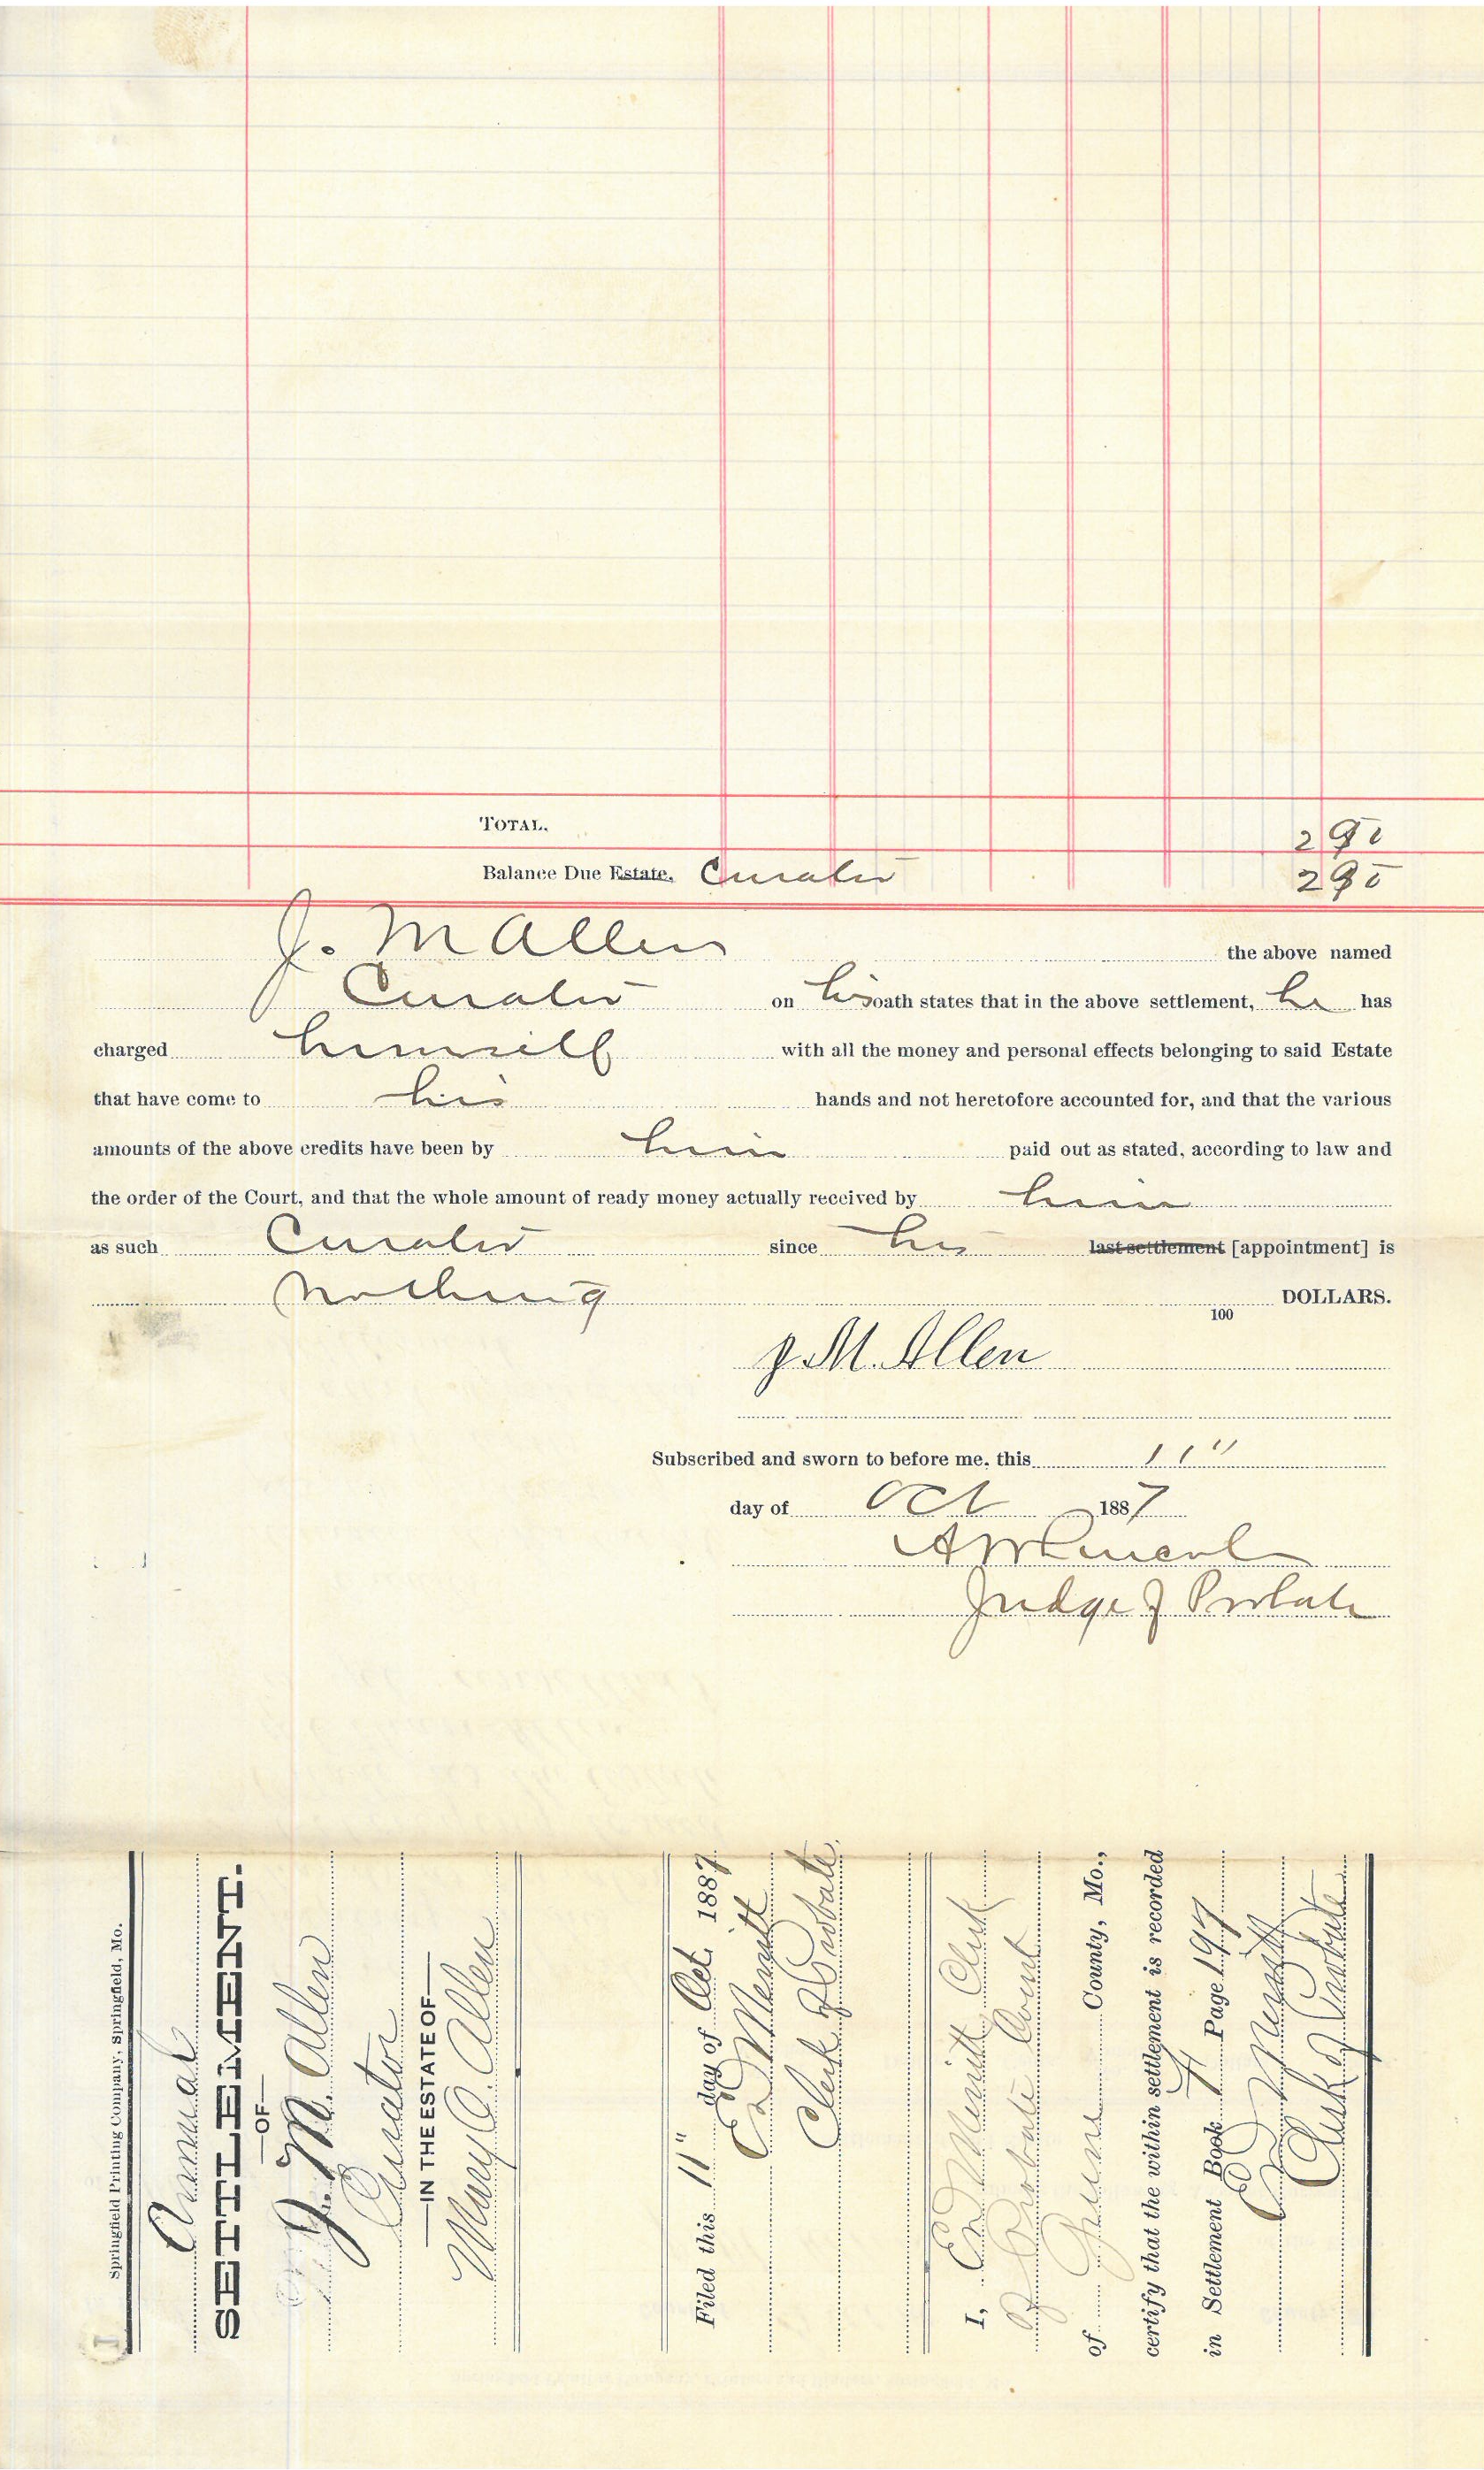 TOTAL. 2 90
Balance Due Estate. Curator 2 90
J. M Allen the above named
Curator on his oath states that in the above settlement, he has
charged himself with all the money and personal effects belonging to said Estate
that have come to his hands and not heretofore accounted for, and that the various
amounts of the above credits have been by him paid out as stated, according to law and
the order of the Court, and that the whole amount of ready money actually received by him
as such Curator since his last settlement [appointment] is
nothing 100 DOLLARS.
J. M. Allen
Subscribed and sworn to before me, this 11"
day of Oct 1887
A W Lincoln
Judge of Probate
Springfield Printing Company, Springfield, Mo.
Annual
SETTLEMENT.
—OF—
J. M. Allen
Curator
—IN THE ESTATE OF—
Mary C. Allen
Filed this 11" day of Oct. 1887
Ed Merritt
Clerk of Probate
I, Ed Merritt Clerk
of Probate Court
of Greene County, Mo.,
certify that the within settlement is recorded
in Settlement Book H Page 197
Ed Merritt
Clerk of Probate